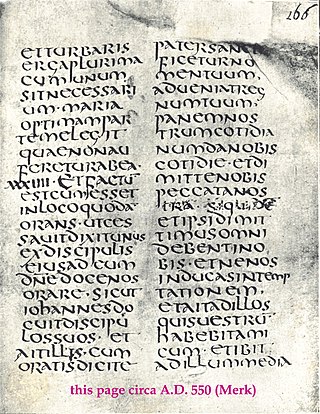 166
ETTURBARIS
ERGAPLURIMA
CUMUNUM
SITNECESSARI
UM·MARIA
OPTIMAMPAR
TEMELEGIT
QUAENONAU
FERETURABEA·
XXXIIII·ETFACTU
ESTCUMESSET
INLOCOQUODA
ORANS·UTCES
SAUITDIXITUNUS
EXDISCIPULIS
EIUSADEUM
DNEDOCENOS
ORARE·SICUT
IOHANNESDO
CUITDISCIPU
LOSSUOS·ET
AITILLIS·CUM
ORATISDICITE
PATERSANCTI
FICETURNO
MENTUUM,
ADUENIATREG
NUMTUUM·
PANEMNOS
TRUMCOTIDIA
NUMDANOBIS
COTIDIE·ETDI
MITTENOBIS
PECCATANOS
ETIPSIDIMIT
TIMUSOMNI
DEBENTINO
BIS·ETNENOS
INDUCASINTEMP
TATIONEM,
ETAITADILLOS
QUISUESTRU
HABEBITAMI
CUM·ETIBIT
ADILLUMMEDIA
this page circa A.D. 550 (Merk)